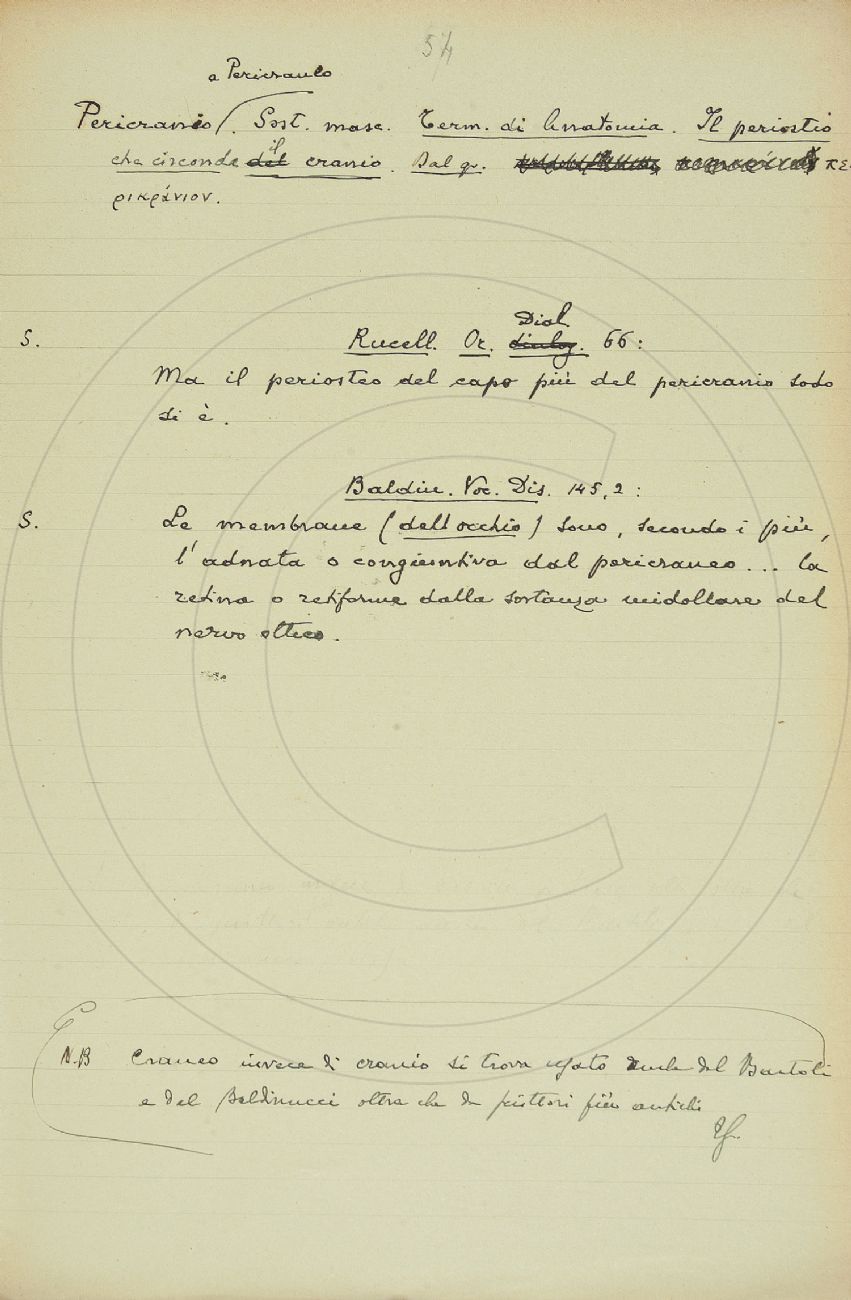 54
e Pericraneo
Pericranio. Sost. masc. Term. di Anatomia. Il periostio
che circonda del il cranio. Dal gr. πε-
ρικράνιον.
S. Rucell. Or. dialog. Dial. 66:
Ma il periosteo del capo più del pericranio sodo
si è.
Baldin. Voc. Dis. 145, 2:
S. Le membrane (dell'occhio) sono, secondo i più,
l'adnata o congiuntiva dal pericraneo... la
retina o retiforme dalla sostanza midollare del
nervo ottico.
N.B Craneo invece di cranio si trova usato anche dal Bartoli
e dal Baldinucci oltre che da scrittori più antichi